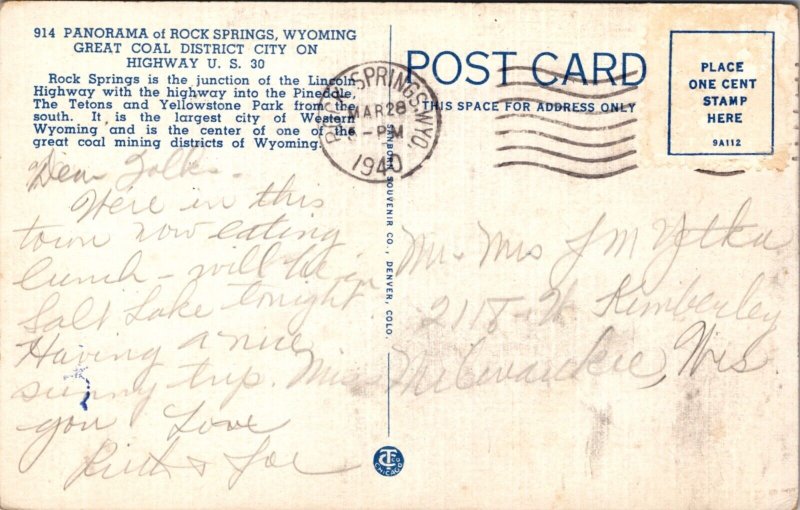 914 PANORAMA of ROCK SPRINGS, WYOMING
GREAT COAL DISTRICT CITY ON
HIGHWAY U. S. 30
Rock Springs is the junction of the Lincoln
Highway with the highway into the Pinedale,
The Tetons and Yellowstone Park from the
south. It is the largest city of Western
Wyoming and is the center of one of the
great coal mining districts of Wyoming.
Dear Folks -
Here in this
town now eating
lunch - will be in
Salt Lake tonight.
Having a nice
sunny trip. Miss
you Love
Ruth & Joe
POST CARD
THIS SPACE FOR ADDRESS ONLY
ROCK SPRINGS, WYO.
MAR 28
-PM
1940
PLACE
ONE CENT
STAMP
HERE
9A112
SANBORN SOUVENIR CO., DENVER, COLO.
Mr. Mrs J M
2118 - W Kimberley
Milwaukee, Wis
CHICAGO